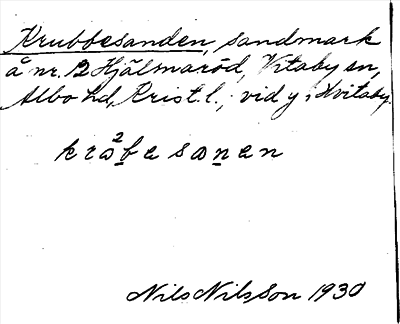 Krubbesanden, sandmark
å nr. 12 Hjälmaröd, Vitaby sn,
Albo hd, Krist. l., vid y i Hvitaby.
kra²be sanen
Nils Nilsson 1930